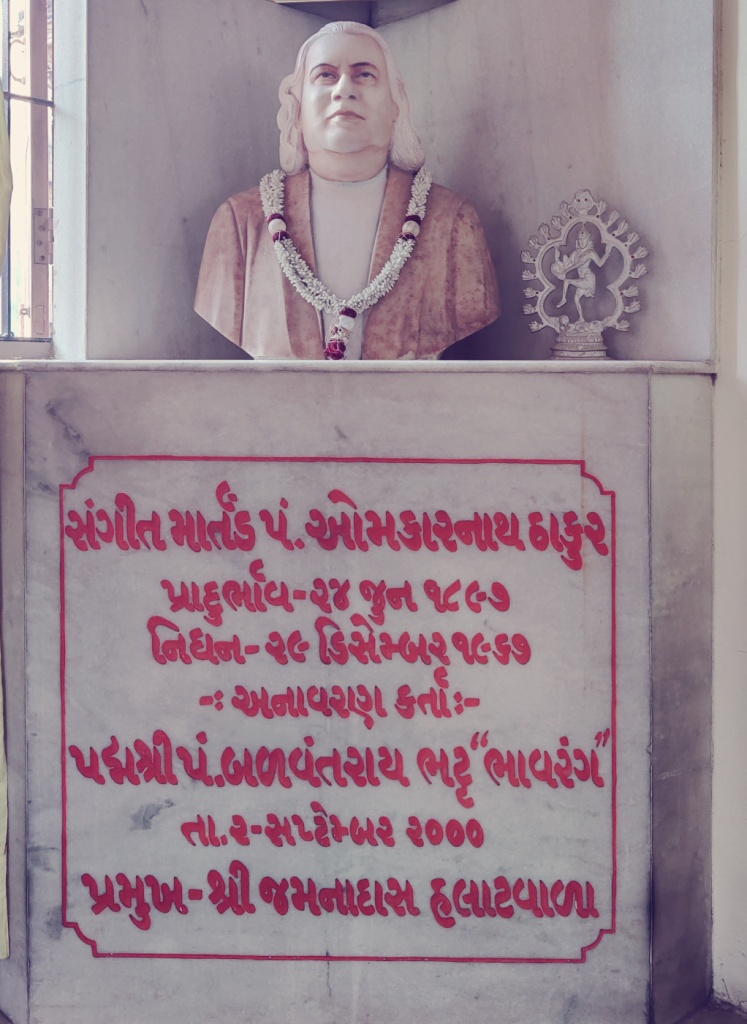 સંગીત માર્તંડ પં. ઓમકારનાથ ઠાકુર
પ્રાદુર્ભાવ-૨૪ જુન ૧૮૯૭
નિધન-૨૯ ડિસેમ્બર ૧૯૬૭
-: અનાવરાણ કર્તા:-
પદ્મશ્રી પં. બળવંતરાય ભટ્ટ "ભાવરંગ"
તા.૨-સપ્ટેમ્બર ૨૦૦૦
પ્રમુખ-શ્રી જમનાદાસ હલાટવાળા